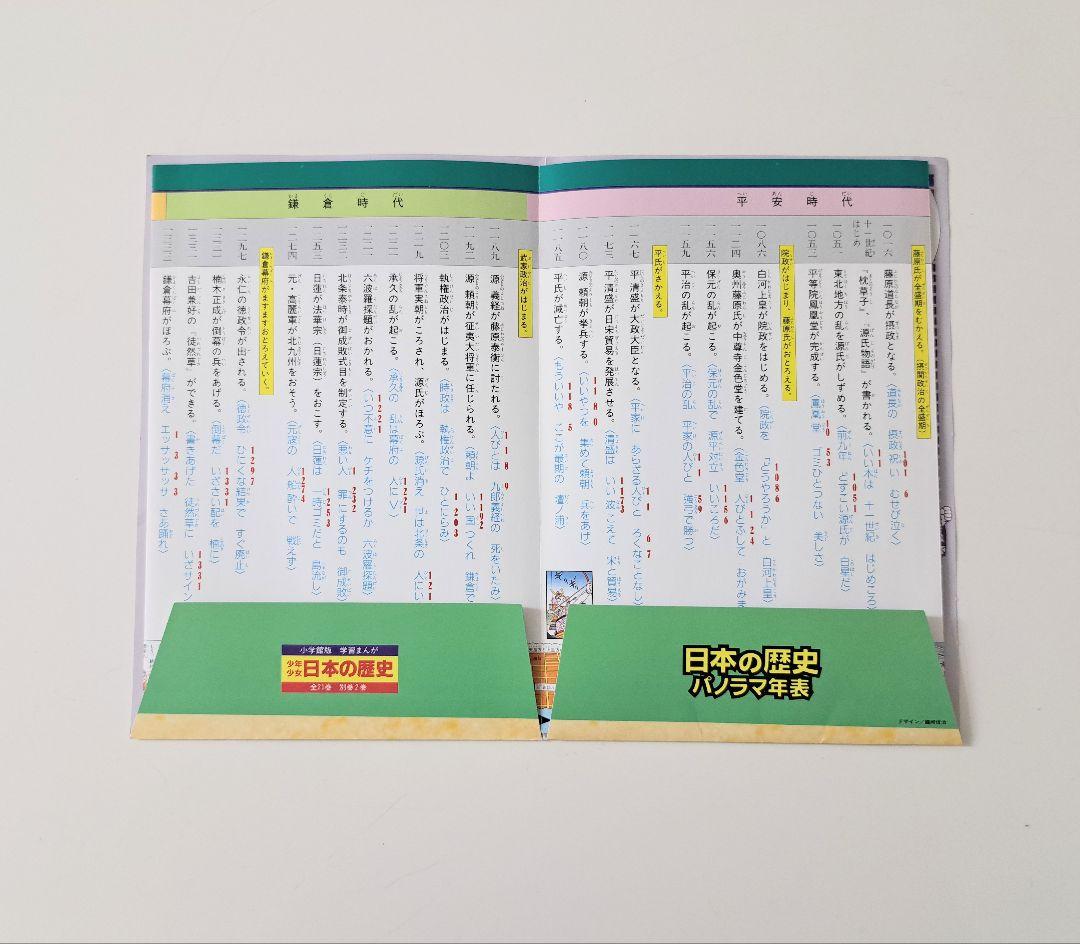 平安時代
藤原氏が全盛期をむかえる。（摂関政治の全盛期）
一〇一六 藤原道長が摂政となる。〈道長の 摂政祝い むせび泣く〉 1016
十一世紀はじめ 『枕草子』、『源氏物語』が書かれる。〈いい本は 十一世紀 はじめごろ〉 11
一〇五一 東北地方の乱を源氏がしずめる。〈前九年 とすごい源氏が 白星だ〉 1051
一〇五三 平等院鳳凰堂が完成する。〈鳳凰堂 ゴミひとつない 美しさ〉 1053
院政がはじまり、藤原氏がおとろえる。
一〇八六 白河上皇が院政をはじめる。〈院政を 「どうやろうか」と 白河上皇〉 1086
一一二四 奥州藤原氏が中尊寺金色堂を建てる。〈金色堂 人びとふして おがみま 1124
一一五六 保元の乱が起こる。〈保元の乱で 源平対立 いいころだ〉 1156
一一五九 平治の乱が起こる。〈平治の乱 平家の人びと 強弓で勝つ〉 1159
平氏がさかえる。
一一六七 平清盛が太政大臣となる。〈平家に あらざる人びと ろくなことなし〉 1167
一一七三 平清盛が日宋貿易を発展させる。〈清盛は いい波こえて 宋と貿易〉 1173
一一八〇 源頼朝が挙兵する。〈いいやつを 集めて頼朝 兵をあげ〉 1180
一一八五 平氏が滅亡する。〈もういいや ここが最期の 壇ノ浦〉 1185
鎌倉時代
武家政治がはじまる。
一一八九 源義経が藤原泰衡に討たれる。〈人びとは 九郎義経の 死をいたみ〉 1189
一一九二 源頼朝が征夷大将軍に任じられる。〈頼朝よ いい国つくれ 鎌倉で 1192
一二〇三 執権政治がはじまる。〈時政は 執権政治で ひとにらみ〉 1203
一二一九 将軍実朝がころされ、源氏がほろぶ。〈源氏消え 世は北条の 人にい 121
一二二一 承久の乱が起こる。〈承久の 乱は幕府の 人にV〉 1221
一二二一 六波羅探題がおかれる。〈いつ不意に ケチをつけるか 六波羅探題〉 1221
一二三二 北条泰時が御成敗式目を制定する。〈悪い人 罪にするのも 御成敗〉 1232
一二五三 日蓮が法華宗（日蓮宗）をおこす。〈日蓮は 一時ゴミだと 島流し〉 1253
一二七四 元・高麗軍が北九州をおそう。〈元寇の 人船酔いで 戦えず〉 1274
鎌倉幕府がますますおとろえていく。
一二九七 永仁の徳政令が出される。〈徳政令 ひにくな結果で すぐ廃止〉 1297
一三三一 楠木正成が倒幕の兵をあげる。〈倒幕だ いざさい配を 楠に〉 1331
一三三一 吉田兼好の『徒然草』ができる。〈書きあげた 徒然草に いざサイン 1331
一三三三 鎌倉幕府がほろぶ。〈幕府消え エッサッサッサ さあ踊れ〉 1333
小学館版 学習まんが
少年少女日本の歴史
全21巻 別巻2巻
日本の歴史
パノラマ年表